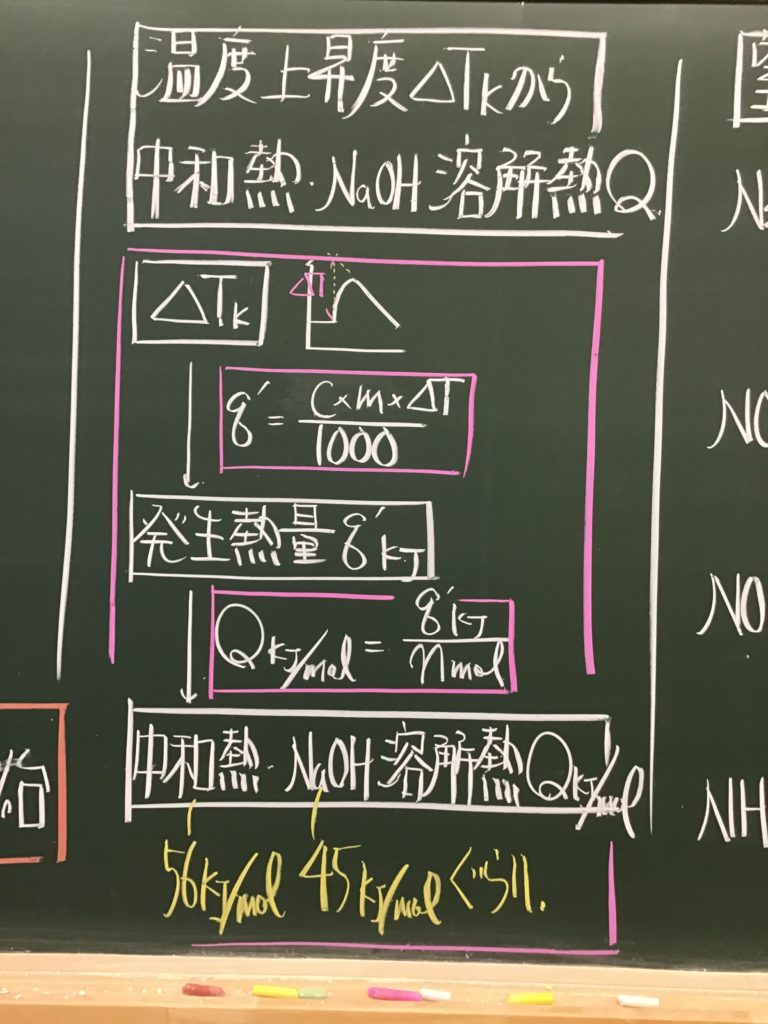 温度上昇度△Tkから
中和熱・NaOH溶解熱Q
△Tk
△T
q' = C×m×△T / 1000
発生熱量 q'kJ
Q kJ/mol = q'kJ / n mol
中和熱・NaOH溶解熱Q kJ/mol
56kJ/mol 45kJ/molぐらい.